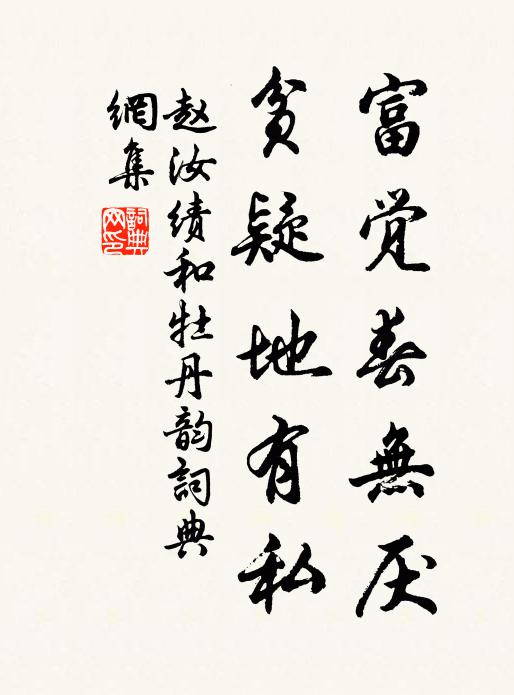 富觉春無厌
贫疑地有私
赵汝绩和牡丹韵詞典
網集
詞典
网印